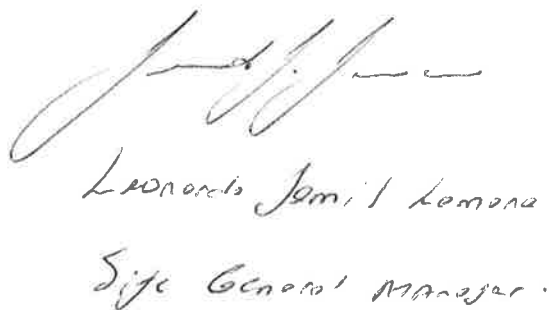 Leonardo Jamil Lamona
Site General Manager.